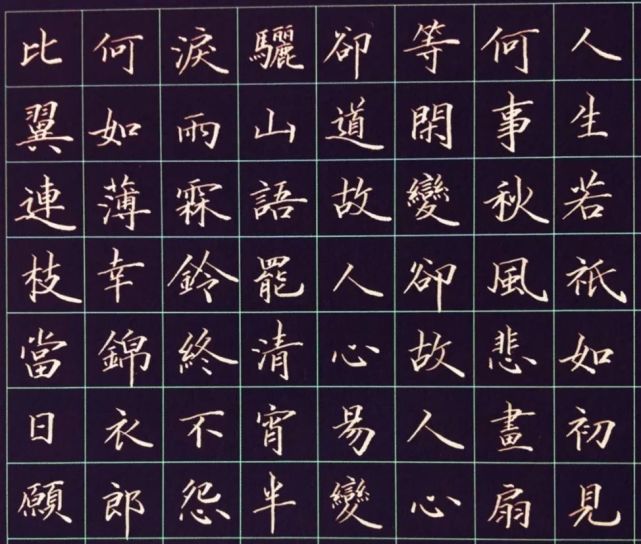 人生若祇如初見
何事秋風悲畫扇
等閑變卻故人心
卻道故人心易變
驪山語罷清宵半
淚雨霖鈴終不怨
何如薄幸錦衣郎
比翼連枝當日願